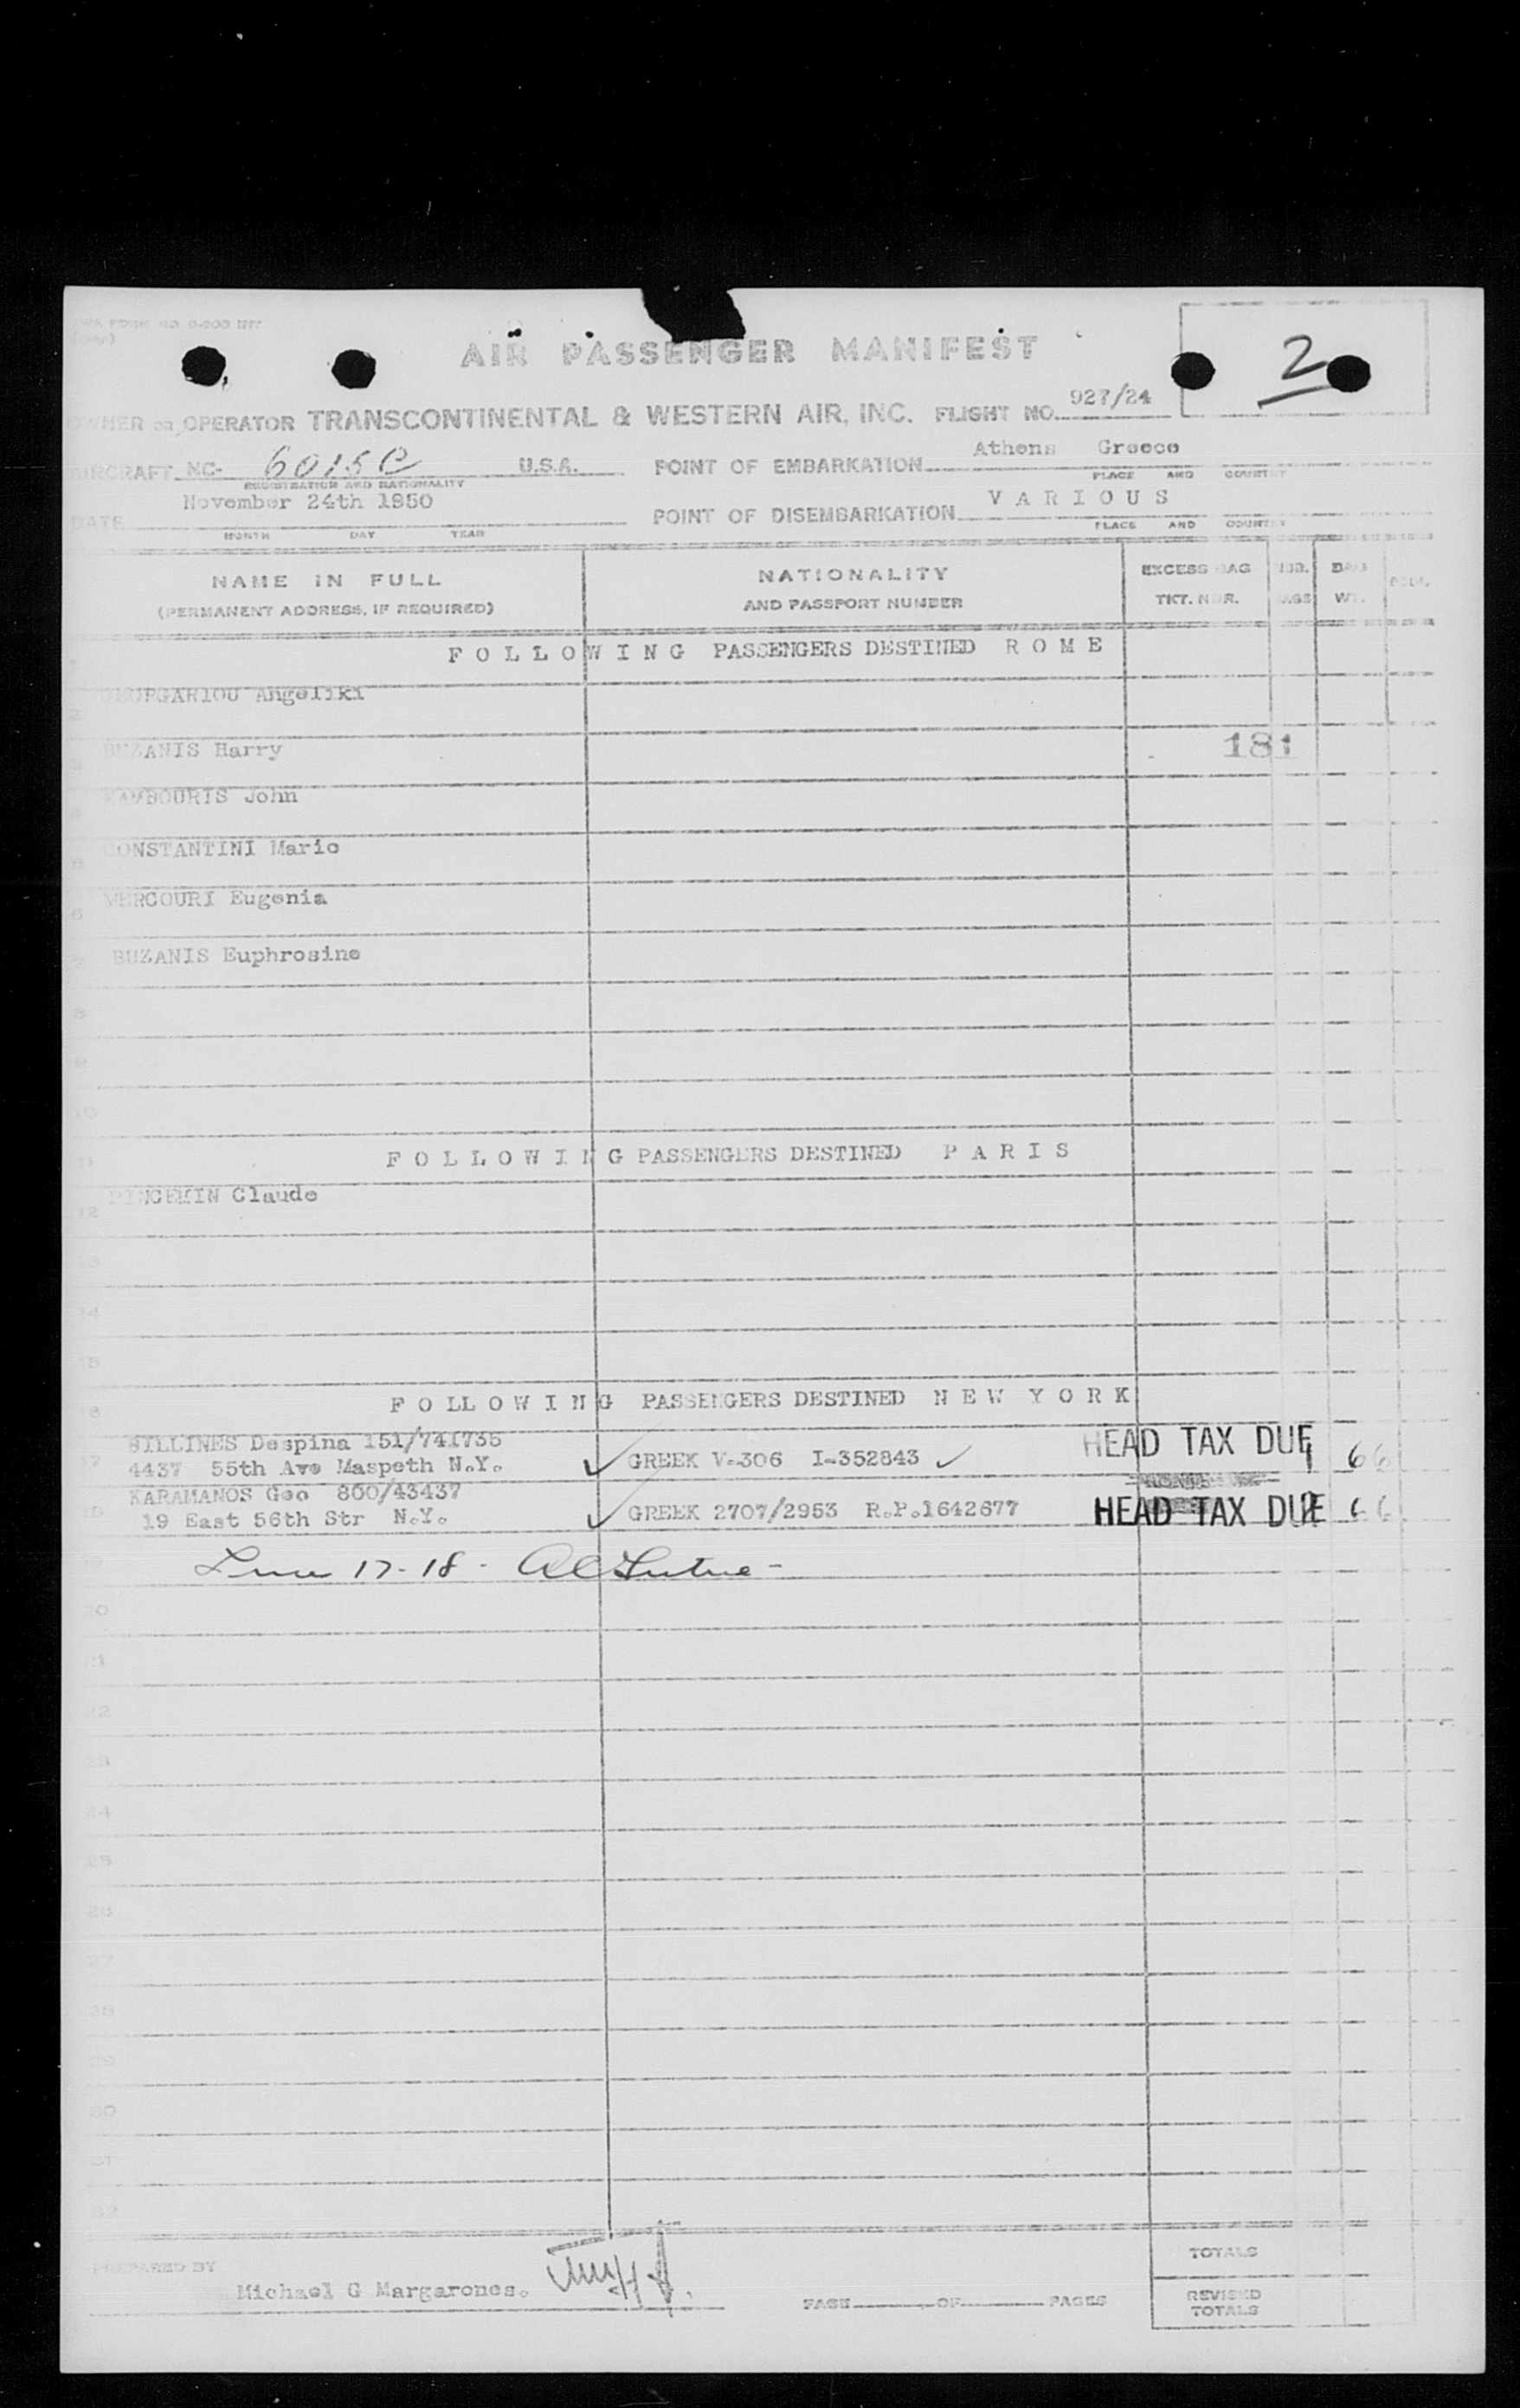 AIR PASSENGER MANIFEST
2
OPERATOR TRANSCONTINENTAL & WESTERN AIR, INC. FLIGHT NO. 927/24
AIRCRAFT NC- 6015C U.S.A. POINT OF EMBARKATION Athens Greece
REGISTRATION AND NATIONALITY PLACE AND COUNTRY
DATE November 24th 1950 POINT OF DISEMBARKATION V A R I O U S
MONTH DAY YEAR PLACE AND COUNTRY
NAME IN FULL NATIONALITY EXCESS BAG BAG
(PERMANENT ADDRESS, IF REQUIRED) AND PASSPORT NUMBER TKT. NBR. WT.
F O L L O W I N G PASSENGERS DESTINED R O M E
Angeliki
BUZANIS Harry 181
John
CONSTANTINI Mario
MERCOURI Eugenia
BUZANIS Euphrosine
10
11 F O L L O W I N G PASSENGERS DESTINED P A R I S
12 Claude
14
15
F O L L O W I N G PASSENGERS DESTINED N E W Y O R K
Despina 151/741735
17 4437 55th Ave Maspeth N.Y. ✓ GREEK V-306 I-352843 ✓ HEAD TAX DUE 66
KARAMANOS Geo 800/43437
19 East 56th Str N.Y. ✓ GREEK 2707/2953 R.P.1642677 HEAD TAX DUE 66
17-18 -
20
21
22
23
24
25
26
27
28
29
30
31
32
PREPARED BY TOTALS
Michael G Margarones. PAGE OF PAGES REVISED
TOTALS